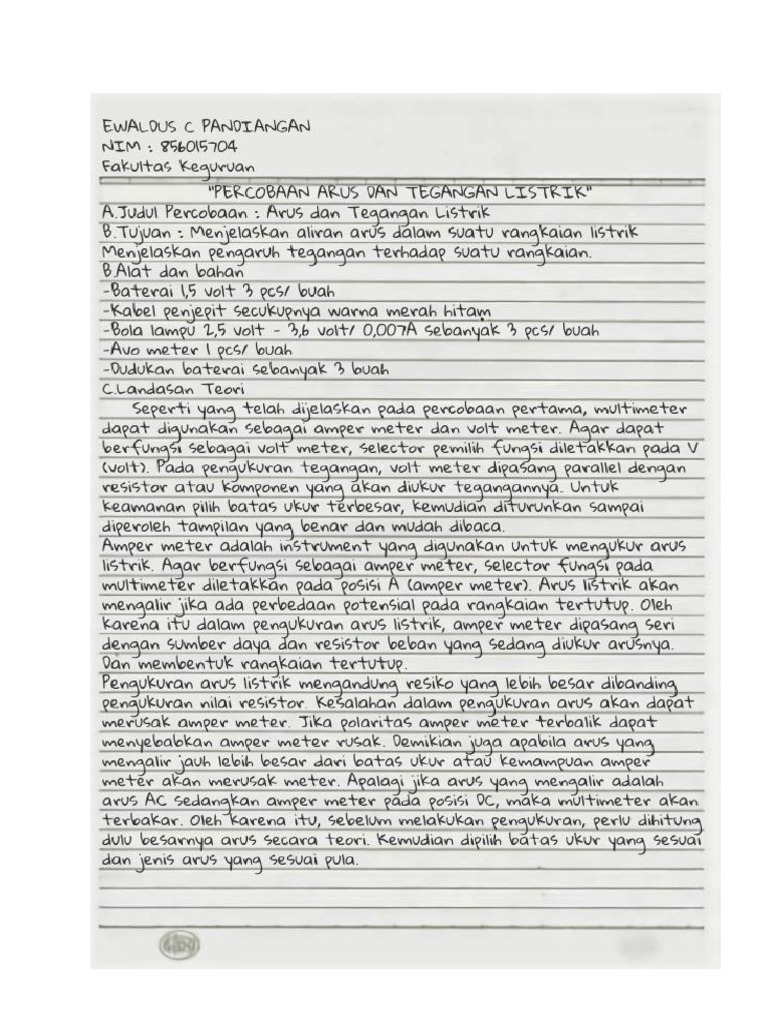 EWALDUS C PANDIANGAN
NIM : 856015704
Fakultas Keguruan
"PERCOBAAN ARUS DAN TEGANGAN LISTRIK"
A.Judul Percobaan : Arus dan Tegangan Listrik
B.Tujuan : Menjelaskan aliran arus dalam suatu rangkaian listrik
Menjelaskan pengaruh tegangan terhadap suatu rangkaian.
B.Alat dan bahan
-Baterai 1,5 volt 3 pcs/ buah
-Kabel penjepit secukupnya warna merah hitam
-Bola lampu 2,5 volt - 3,6 volt/ 0,007A sebanyak 3 pcs/ buah
-Avo meter 1 pcs/ buah
-Dudukan baterai sebanyak 3 buah
C.Landasan Teori
Seperti yang telah dijelaskan pada percobaan pertama, multimeter
dapat digunakan sebagai amper meter dan volt meter. Agar dapat
berfungsi sebagai volt meter, selector pemilih fungsi diletakkan pada V
(volt). Pada pengukuran tegangan, volt meter dipasang parallel dengan
resistor atau komponen yang akan diukur tegangannya. Untuk
keamanan pilih batas ukur terbesar, kemudian diturunkan sampai
diperoleh tampilan yang benar dan mudah dibaca.
Amper meter adalah instrument yang digunakan untuk mengukur arus
listrik. Agar berfungsi sebagai amper meter, selector fungsi pada
multimeter diletakkan pada posisi A (amper meter). Arus listrik akan
mengalir jika ada perbedaan potensial pada rangkaian tertutup. Oleh
karena itu dalam pengukuran arus listrik, amper meter dipasang seri
dengan sumber daya dan resistor beban yang sedang diukur arusnya.
Dan membentuk rangkaian tertutup.
Pengukuran arus listrik mengandung resiko yang lebih besar dibanding
pengukuran nilai resistor. Kesalahan dalam pengukuran arus akan dapat
merusak amper meter. Jika polaritas amper meter terbalik dapat
menyebabkan amper meter rusak. Demikian juga apabila arus yang
mengalir jauh lebih besar dari batas ukur atau kemampuan amper
meter akan merusak meter. Apalagi jika arus yang mengalir adalah
arus AC sedangkan amper meter pada posisi DC, maka multimeter akan
terbakar. Oleh karena itu, sebelum melakukan pengukuran, perlu dihitung
dulu besarnya arus secara teori. Kemudian dipilih batas ukur yang sesuai
dan jenis arus yang sesuai pula.